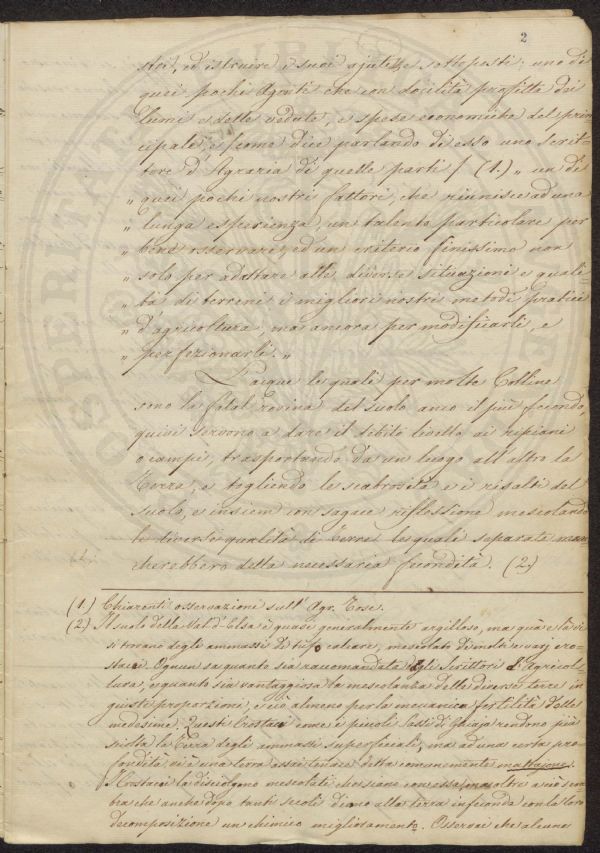 2
stri, ed istruire i suoi ajuti, e sottoposti; uno di
quei pochi Agenti che con docilità profitta dei
lumi e delle vedute, e spese economiche del prin-
cipale, e (come dice parlando di esso uno Scrit-
tore d'Agraria di quelle parti) (1.) „ un di
„ quei pochi nostri fattori, che riunisce ad una
„ lunga esperienza, un talento particolare per
„ bene osservare, ed un criterio finissimo non
„ solo per adattare alle diverse situazioni e quali-
„ tà di terreni i migliori nostri metodi pratici
„ d'agricoltura, ma ancora per modificarli, e
„ perfezionarli. „
L'acque le quali per molte Colline
sono la fatal rovina del suolo anco il più fecondo,
quivi servono a dare il debito livello ai ripiani
o campi, trasportando da un luogo all'altro la
Terra, e togliendo le scabrosità e i risalti del
suolo, e insiem con sagace riflessione mescolando
le diverse qualità di Terre le quali separate man-
cherebbero della necessaria fecondità. (2.)
(1.) Chiarenti osservazioni sull'Agr. Tosc.
(2.) Il suolo della Val d'Elsa è quasi generalmente argilloso, ma quà e là vi
si trovano degli ammassi di tufo calcare, mescolato di molti e varj cro-
stacei. Ognun sa quanto sia raccomandata dagli Scrittori d'Agricol-
tura, e quanto sia vantaggiosa la mescolanza delle diverse terre in
giuste proporzioni, e ciò almeno per la meccanica fertilità delle
medesime. Questi Crostacei come i piccoli Sassi di Ghiaja rendono più
sciolta la Terra degli ammassi superficiali, ma ad una certa pro-
fondità vi è una terra assai tenace detta comunemente mattajone.
I Crostacei la disciolgono mescolati che siano con essa, ma oltre a ciò sem-
bra che anche dopo tanti secoli diano alla terra infeconda con la loro
decomposizione un chimico miglioramento. Osservai che alcune